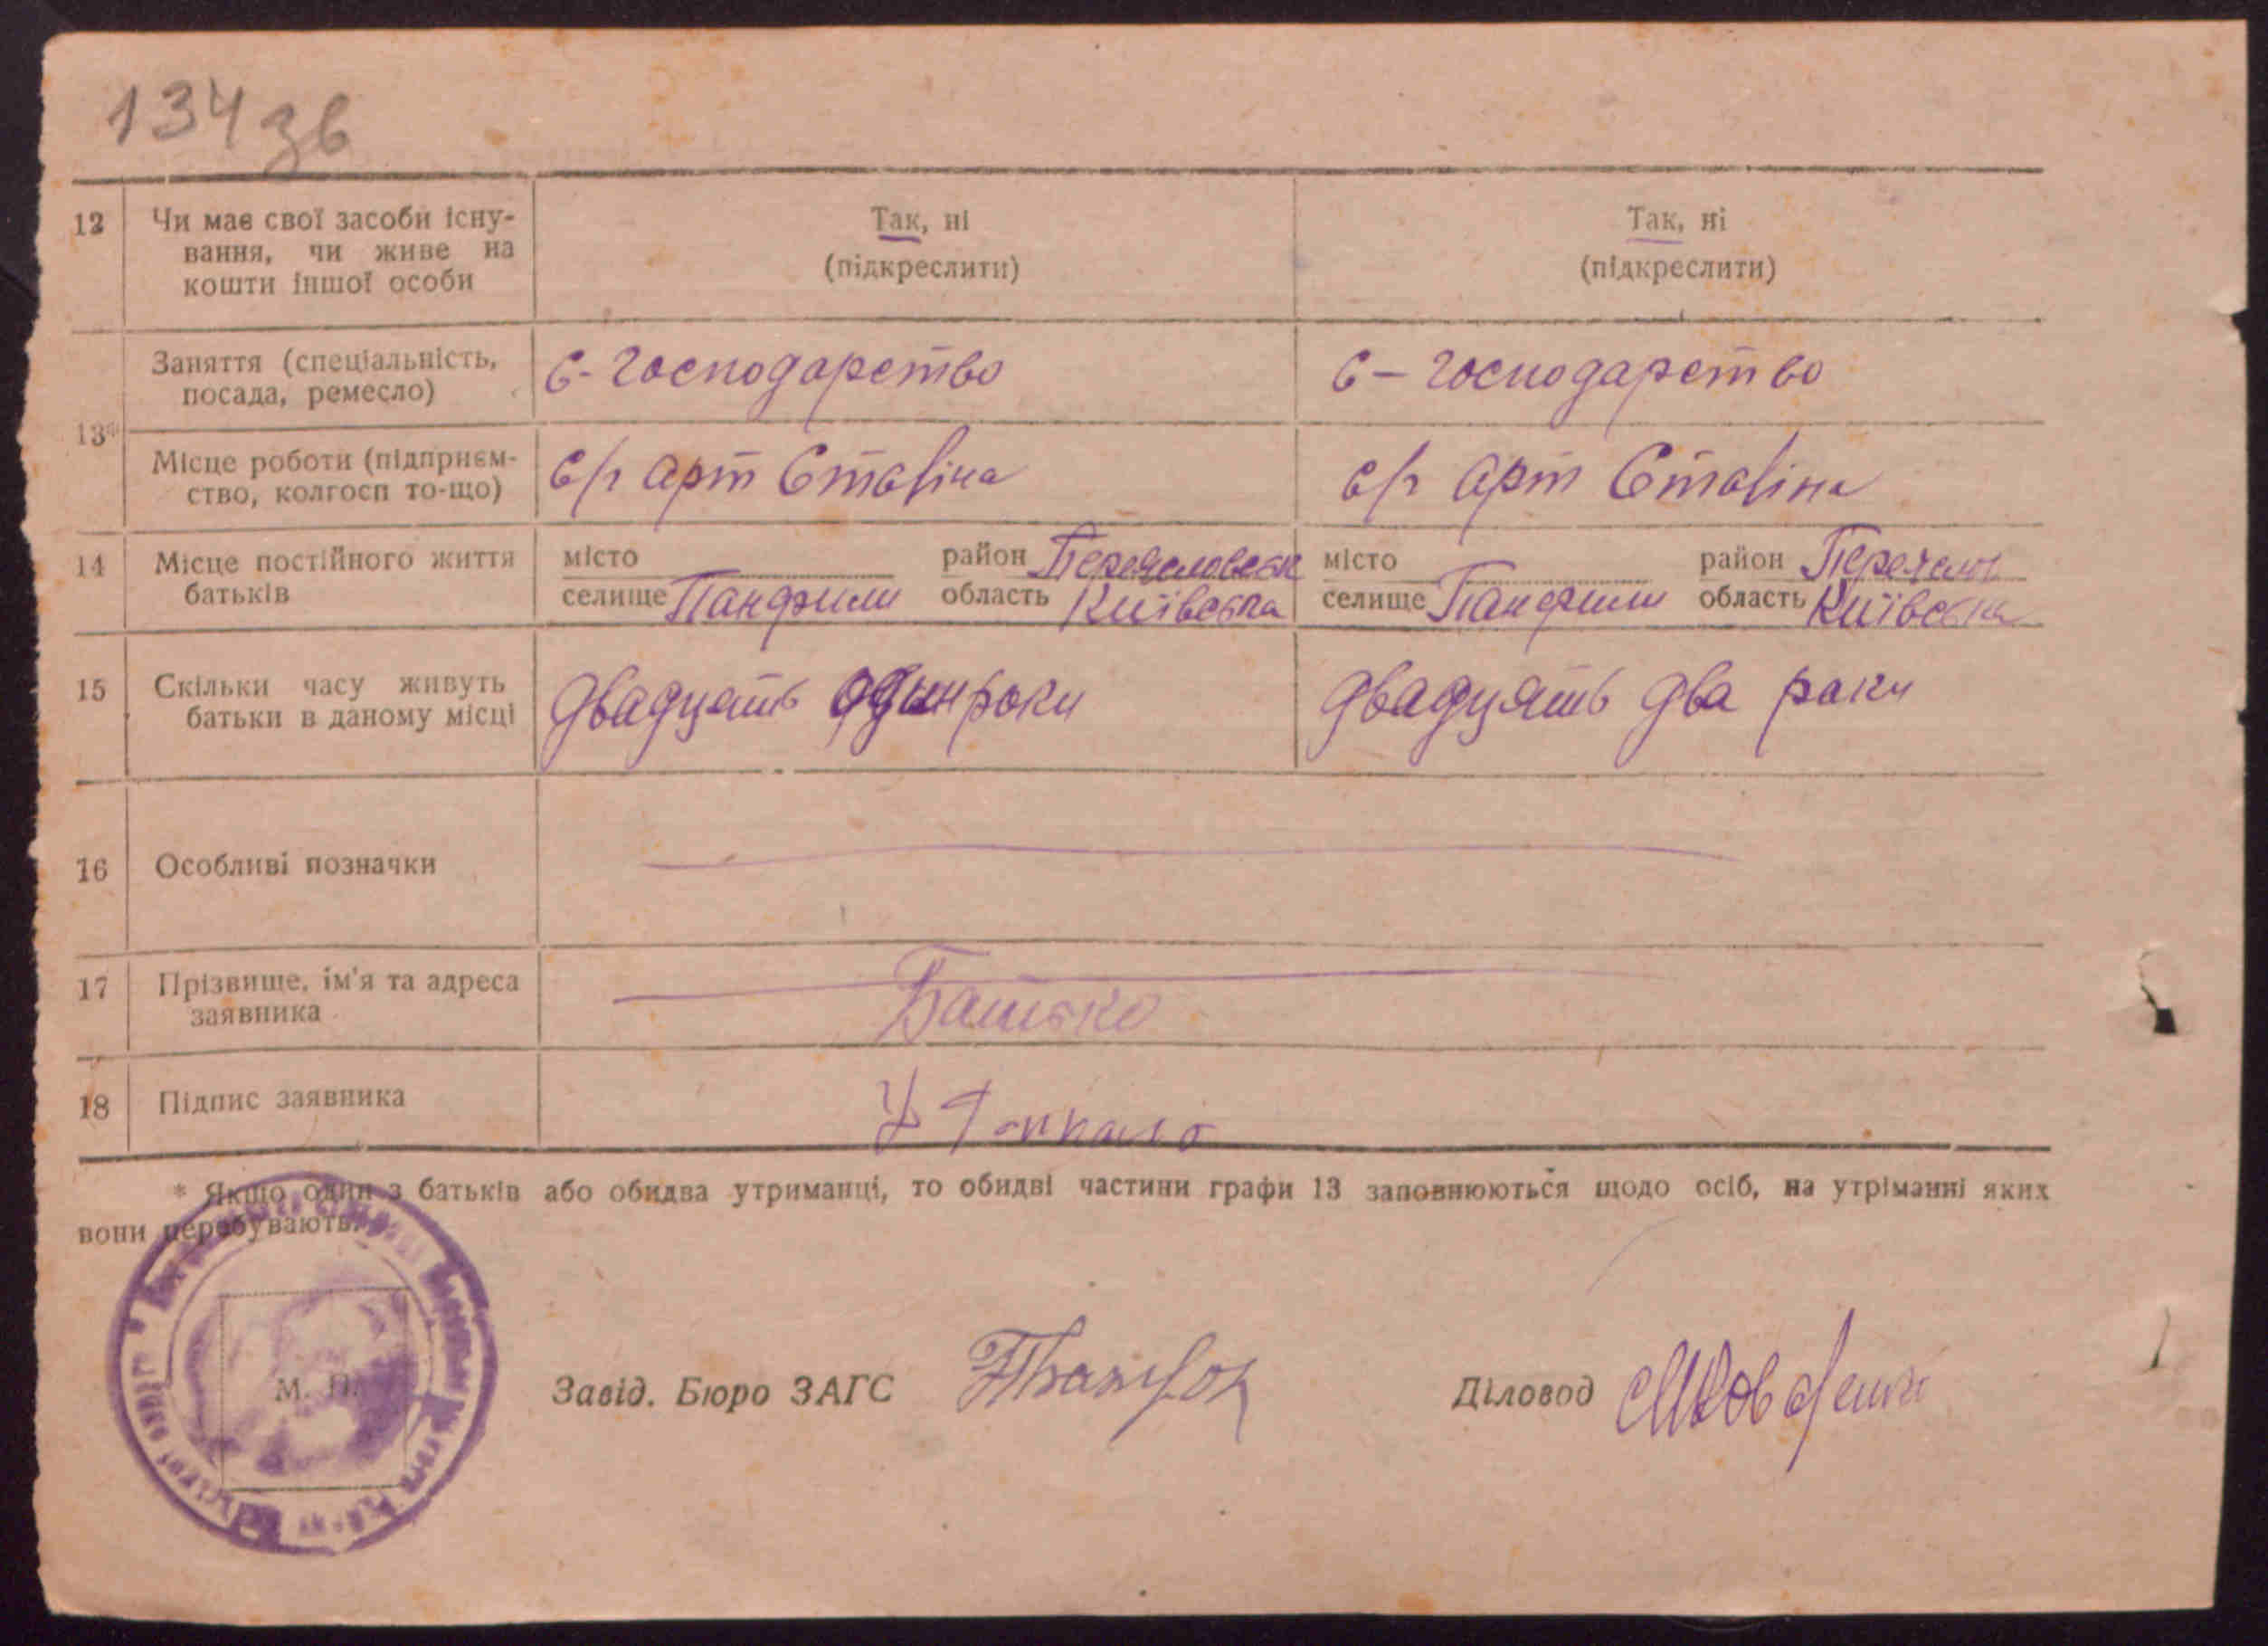 134 зв
12 Чи має свої засоби існу- Так, ні Так, ні
вання, чи живе на (підкреслити) (підкреслити)
кошти іншої особи
Заняття (спеціальність, С-господарство С-господарство
посада, ремесло)
13*
Місце роботи (підприєм- с/г арт Сталіна с/г арт Сталіна
ство, колгосп то-що)
14 Місце постійного життя місто район Переясловськ місто район Переяслов
батьків селище Панфили область Київська селище Панфили область Київська
15 Скільки часу живуть двадцять один роки двадцять два роки
батьки в даному місці
16 Особливі позначки
17 Прізвище, ім'я та адреса Батько
заявника
18 Підпис заявника
* Якщо один з батьків або обидва утриманці, то обидві частини графи 13 заповнюються щодо осіб, на утріманні яких
вони перебувають.
М. П. Завід. Бюро ЗАГС Діловод